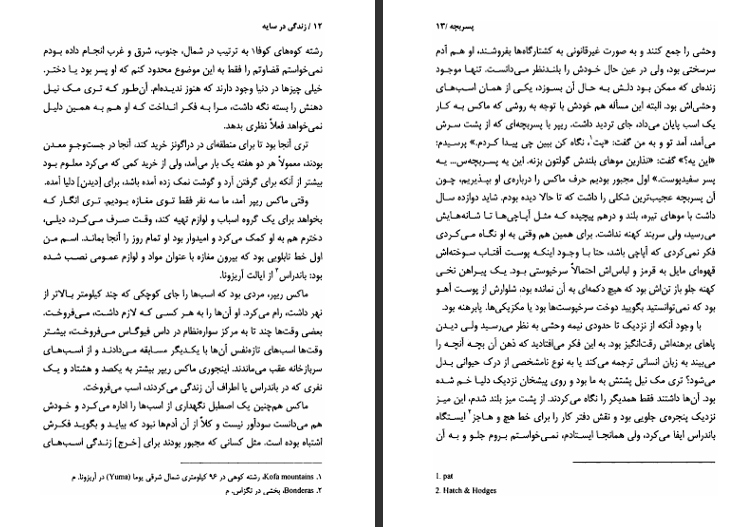 ۱۲ / زندگی در سایه
رشته کوه‌های کوفا۱ به ترتیب در شمال، جنوب، شرق و غرب انجام داده بودم
نمی‌خواستم قضاوتم را فقط به این موضوع محدود کنم که او پسر بود یا دختر.
خیلی چیزها در دنیا وجود دارند که هنوز ندیده‌ام. آن‌طور که تری مک نیل
دهنش را بسته نگه داشت، مرا به فکر انداخت که او هم به همین دلیل
نمی‌خواهد فعلاً نظری بدهد.
تری آنجا بود تا برای منطقه‌ای در دراگونز خرید کند، آنجا در جست‌وجوِ معدن
بودند، معمولاً هر دو هفته یک بار می‌آمد، ولی از خرید کمی که می‌کرد معلوم بود
بیشتر از آنکه برای گرفتن آرد و گوشت نمک زده آمده باشد، برای [دیدن] دلیا آمده.
وقتی ماکس ریپر آمد، ما سه نفر فقط توی مغازه بودیم. تری انگار که
بخواهد برای یک گروه اسباب و لوازم تهیه کند، وقت صرف می‌کرد، دیلی،
دخترم هم به او کمک می‌کرد و امیدوار بود او تمام روز را آنجا بماند. اسم من
اول خط تابلویی بود که بیرون مغازه با عنوان مواد و لوازم عمومی نصب شده
بود: باندراس۲ از ایالت آریزونا.
ماکس ریپر، مردی بود که اسب‌ها را جای کوچکی که چند کیلومتر بالاتر از
نهر داشت، رام می‌کرد. او آن‌ها را به هر کسی که لازم داشت، می‌فروخت.
بعضی وقت‌ها چند تا به مرکز سواره‌نظام در داس فیوگاس می‌فروخت، بیشتر
وقت‌ها اسب‌های تازه‌نفس آن‌ها با یکدیگر مسابقه می‌دادند و از اسب‌های
سربازخانه عقب می‌ماندند. اینجوری ماکس ریپر بیشتر به یکصد و هشتاد و یک
نفری که در باندراس یا اطراف آن زندگی می‌کردند، اسب می‌فروخت.
ماکس هم‌چنین یک اصطبل نگهداری از اسب‌ها را اداره می‌کرد و خودش
هم می‌دانست سودآور نیست و کلاً از آن آدم‌ها نبود که بیاید و بگوید فکرش
اشتباه بوده است. مثل کسانی که مجبور بودند برای [خرج] زندگی اسب‌های
۱. Kofa mountains، رشته کوهی در ۹۶ کیلومتری شمال شرقی یوما (Yuma) در آریزونا. م
۲. Bonderas، بخشی در تگزاس. م
پسربچه /۱۳
وحشی را جمع کنند و به صورت غیرقانونی به کشتارگاه‌ها بفروشند، او هم آدم
سرسختی بود، ولی در عین حال خودش را بلندنظر می‌دانست. تنها موجود
زنده‌ای که ممکن بود دلش به حال آن بسوزد، یکی از همان اسب‌های
وحشی‌اش بود. البته این مسأله هم خودش با توجه به روشی که ماکس به کار
یک اسب پایان می‌داد، جای تردید داشت. ریپر با پسربچه‌ای که از پشت سرش
می‌آمد، آمد تو و به من گفت: «پت۱، نگاه کن ببین چی پیدا کردم.» پرسیدم:
«این یه؟» گفت: «نذارین موهای بلندش گولتون بزنه. این یه پسربچه‌س... یه
پسر سفیدپوست.» اول مجبور بودیم حرف ماکس را درباره‌ی او بپذیریم، چون
آن پسربچه عجیب‌ترین شکلی را داشت که تا حالا دیده بودم. شاید دوازده سال
داشت با موهای تیره، بلند و درهم پیچیده که مثل آپاچی‌ها تا شانه‌هایش
می‌رسید، ولی سربند کهنه نداشت. برای همین هم وقتی به او نگاه می‌کردی
فکر نمی‌کردی که آپاچی باشد، حتا با وجود اینکه پوست آفتاب سوخته‌اش
قهوه‌ای مایل به قرمز و لباس‌اش احتمالاً سرخپوستی بود. یک پیراهن نخی
کهنه جلو باز تن‌اش بود که هیچ دکمه‌ای به آن نمانده بود، شلوارش از پوست آهو
بود که نمی‌توانستید بگویید دوخت سرخپوست‌ها بود یا مکزیکی‌ها. پابرهنه بود.
با وجود آنکه از نزدیک تا حدودی نیمه وحشی به نظر می‌رسید ولی دیدن
پاهای برهنه‌اش رقت‌انگیز بود. به این فکر می‌افتادید که ذهن آن بچه آنچه را
می‌بیند به زبان انسانی ترجمه می‌کند یا به نوع نامشخصی از درک حیوانی بدل
می‌شود؟ تری مک نیل پشتش به ما بود و روی پیشخان نزدیک دلیا خم شده
بود. آن‌ها داشتند فقط همدیگر را نگاه می‌کردند. از پشت میز بلند شدم، این میز
نزدیک پنجره‌ی جلویی بود و نقش دفتر کار را برای خط هچ و هاجز۲ ایستگاه
باندراس ایفا می‌کرد، ولی همانجا ایستادم، نمی‌خواستم بروم جلو و به آن
1. pat
2. Hatch & Hodges